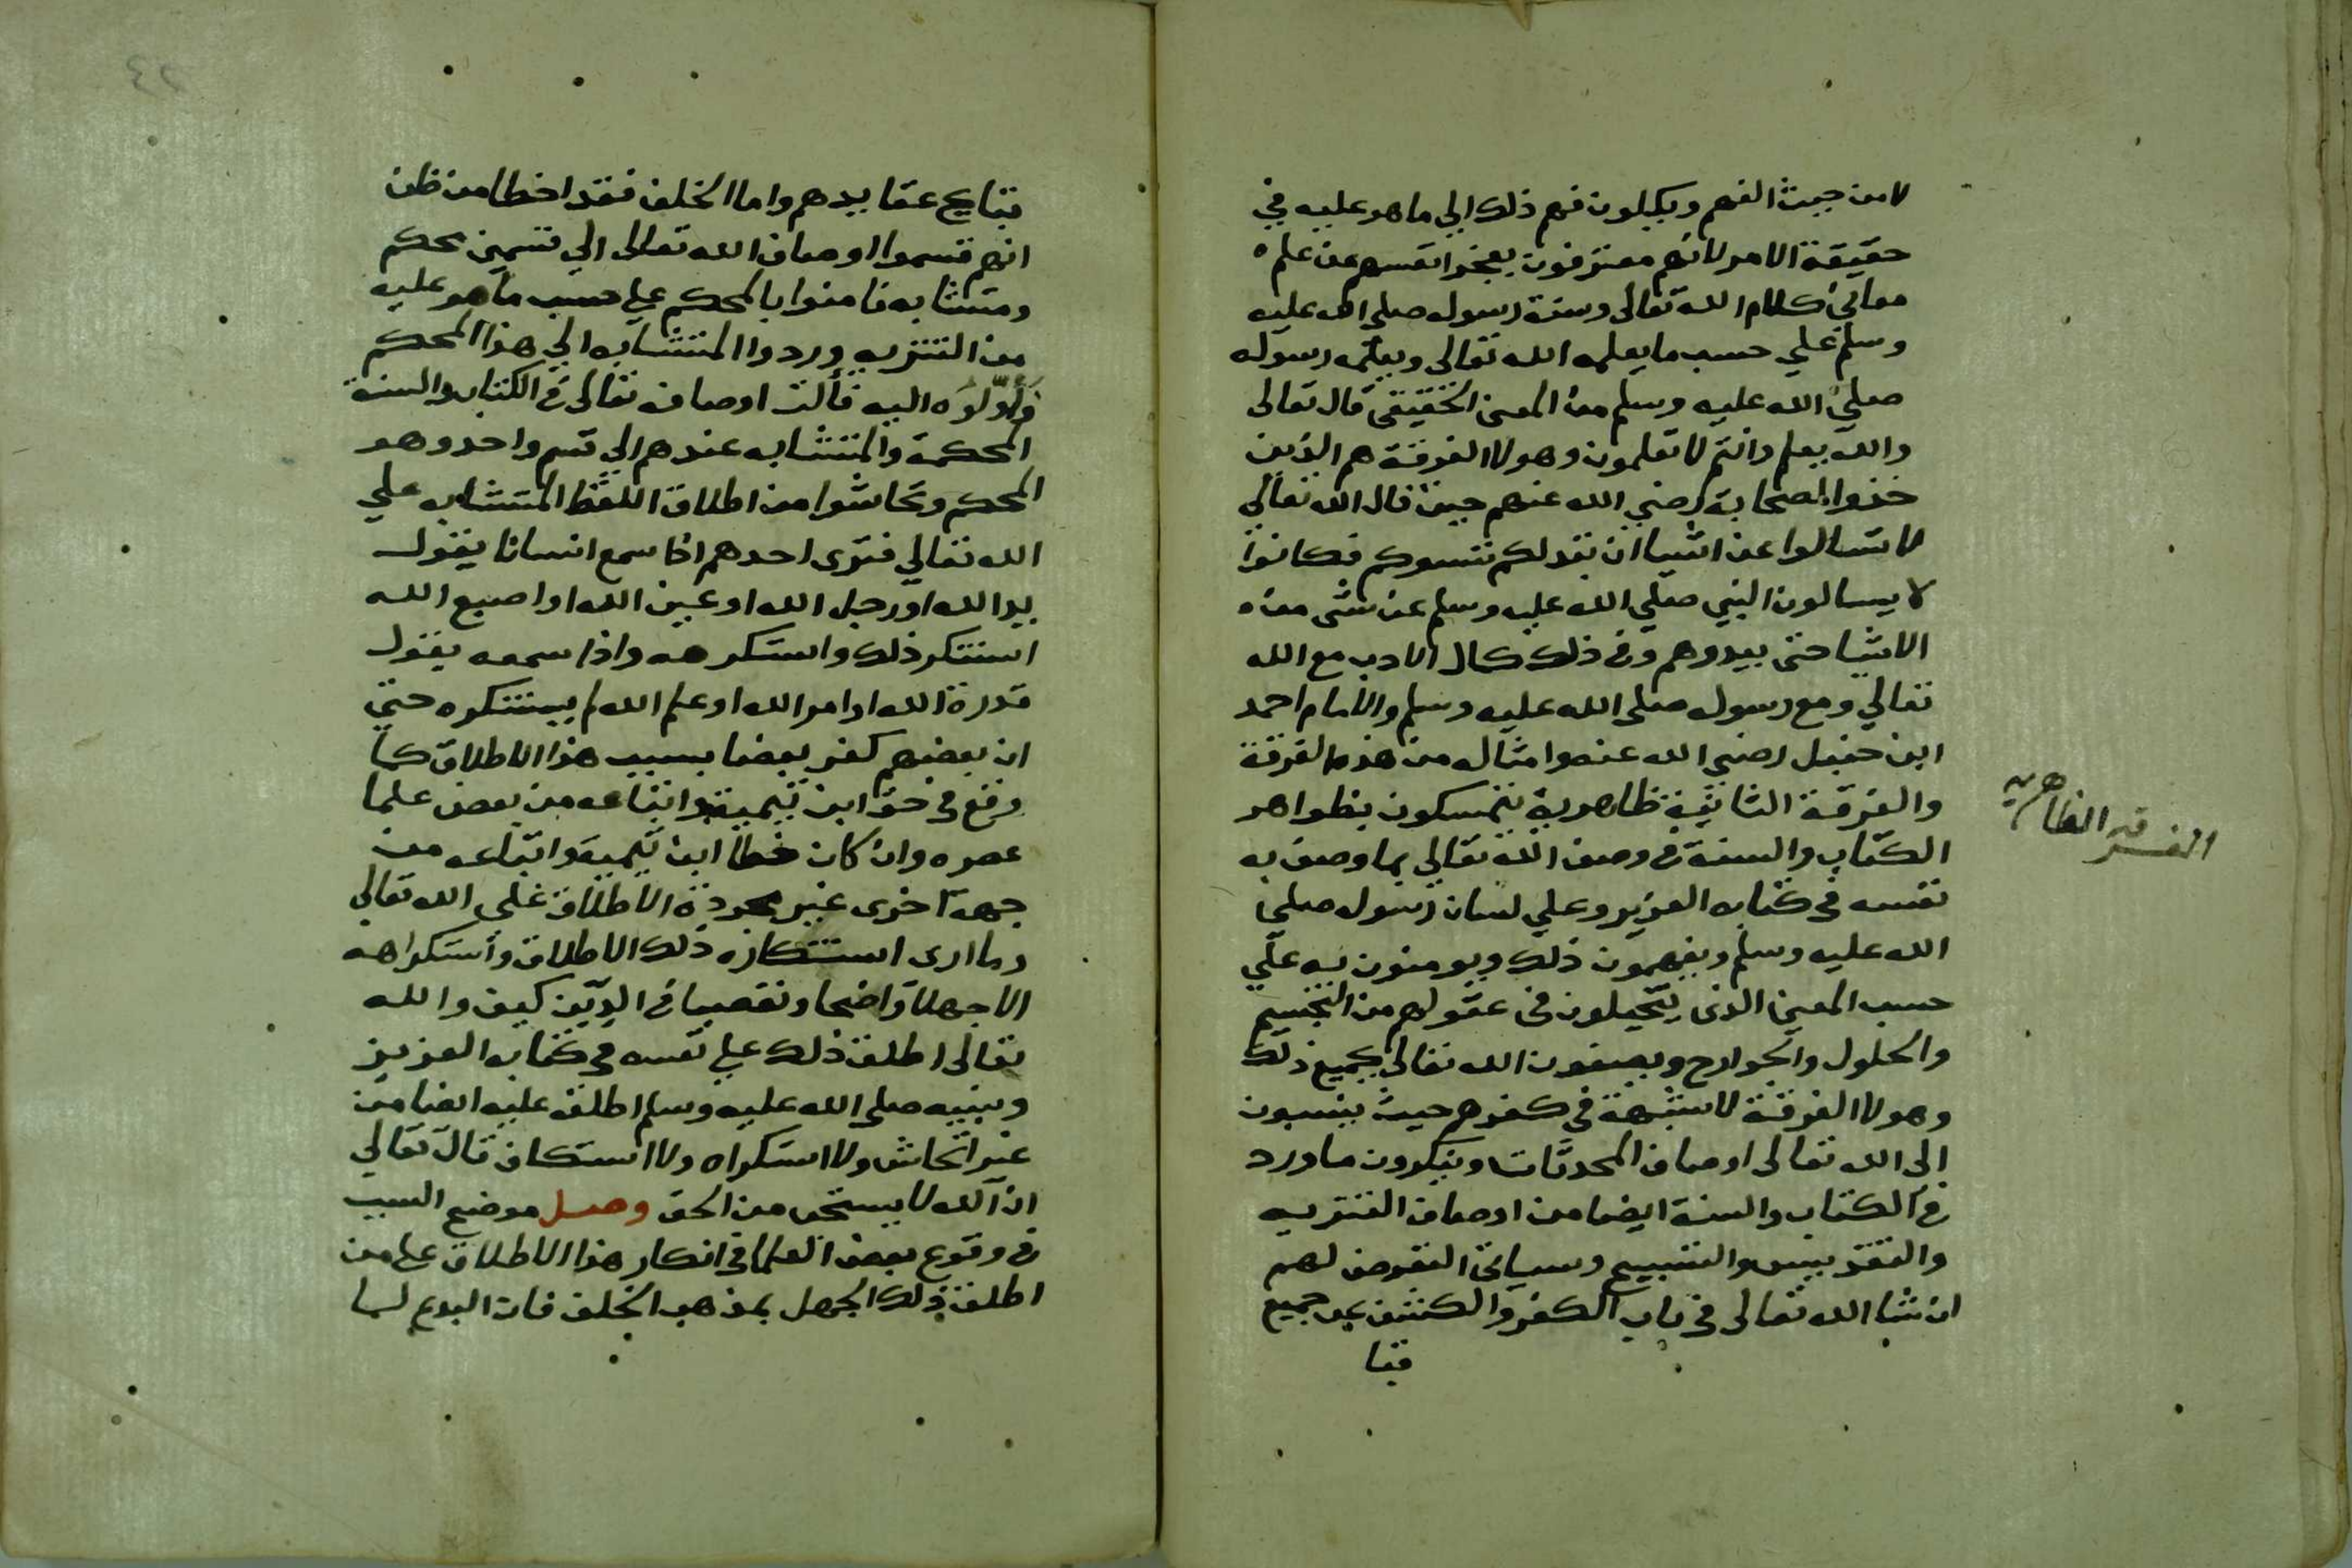 لا من حيث الفهم ويكلون فهم ذلك الي ما هو عليه في
حقيقة الامر لانهم معترفون بعجز انفسهم عن علم
معاني كلام الله تعالى وسنة رسوله صلى الله عليه
وسلم علي حسب ما يعلمه الله تعالى ويعلمه رسوله
صلي الله عليه وسلم من المعنى الحقيقي قال تعالى
والله يعلم وانتم لا تعلمون وهولا الفرقة هم الذين
حذوا الصحابة رضي الله عنهم حين قال الله تعالي
لا تسالوا عن اشيا ان تبد لكم تسوكم فكانوا
لا يسالون النبي صلي الله عليه وسلم عن شى من
الاشيا حتى يبدوهم وفى ذلك كمال الادب مع الله
تعالي ومع رسوله صلى الله عليه وسلم والامام احمد
ابن حنبل رضي الله عنه وامثاله من هذه الفرقة
والفرقة الثانية ظاهرية يتمسكون بظواهر
الفرقه الظاهريه
الكتاب والسنة في وصف الله تعالي بما وصف به
نفسه في كتابه العزيز وعلي لسان رسوله صلي
الله عليه وسلم ويفهمون ذلك ويومنون به علي
حسب المعنى الذى يتخيلون فى عقولهم من التجسيم
والحلول والجوارح ويصفون الله تعالى بجميع ذلك
وهولا الفرقة لا شبهة في كفرهم حيث ينسبون
الى الله تعالى اوصاف المحدثات وينكرون ما ورد
في الكتاب والسنة ايضا من اوصاف التنزيه
والتقديس والتسبيح وسياتى التعرض لهم
ان شا الله تعالى في باب الكفر والكشف عن جميع
قبا
قبايح عقايدهم واما الخلف فقد اخطا من ظن
انهم قسموا اوصاف الله تعالى الي قسمين محكم
ومتشابه فامنوا بالمحكم علي حسب ما هو عليه
من التنزيه وردوا المتشابه الي هذا المحكم
وأوّلوه اليه فآلت اوصافه تعالى في الكتاب والسنة
المحكمة والمتشابه عندهم الي قسم واحد وهو
المحكم وتحاشوا من اطلاق اللفظ المتشابه علي
الله تعالي فترى احدهم اذا سمع انسانا يقول
يد الله او رجل الله او عين الله او اصبع الله
استنكر ذلك واستكرهه واذا سمعه يقول
قدرة الله او امر الله او علم الله لم يستنكره حتي
ان بعضهم كفر بعضا بسبب هذا الاطلاق كما
وقع في حق ابن تيمية واتباعه من بعض علما
عصره وان كان خطا ابن تيمية واتباعه من
جهة اخرى غير مجردة الاطلاق علي الله تعالي
وما ارى استنكاره ذلك الاطلاق واستكراهه
الا جهلا واضحا وتعصبا في الدين كيف والله
تعالى اطلق ذلك علي نفسه في كتابه العزيز
ونبيه صلى الله عليه وسلم اطلقه عليه ايضا من
غير اتحاش ولا استكراه ولا استنكاف قال تعالي
ان الله لا يستحى من الحق وصل موضع السبب
في وقوع بعض العلما في انكار هذا الاطلاق على من
اطلق ذلك الجهل بمذهب الخلف فان البدع لما